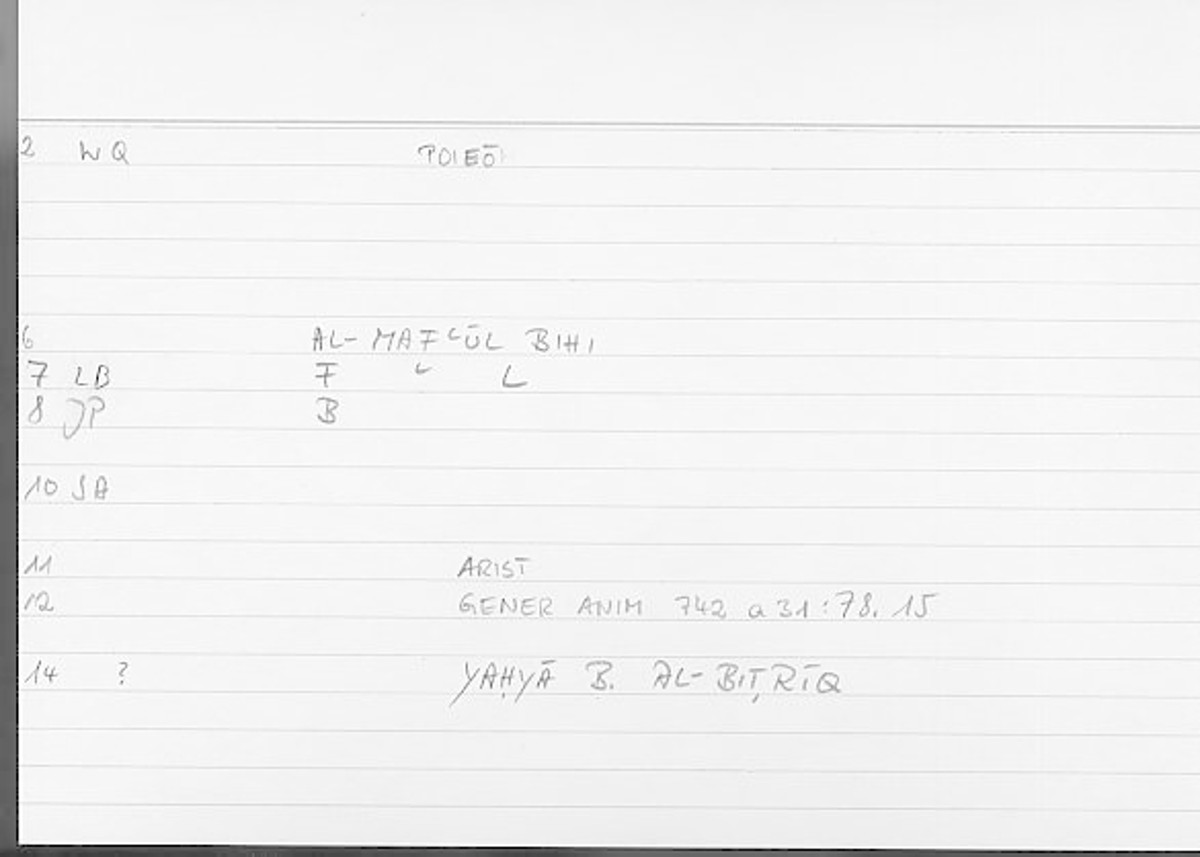 2 WQ POIEŌ
6 AL-MAFʿŪL BIHI
7 LB F ʿ L
8 JP B
10 SA
11 ARIST
12 GENER ANIM 742 a 31:78.15
14 ? YAḤYĀ B. AL-BIṬRĪQ